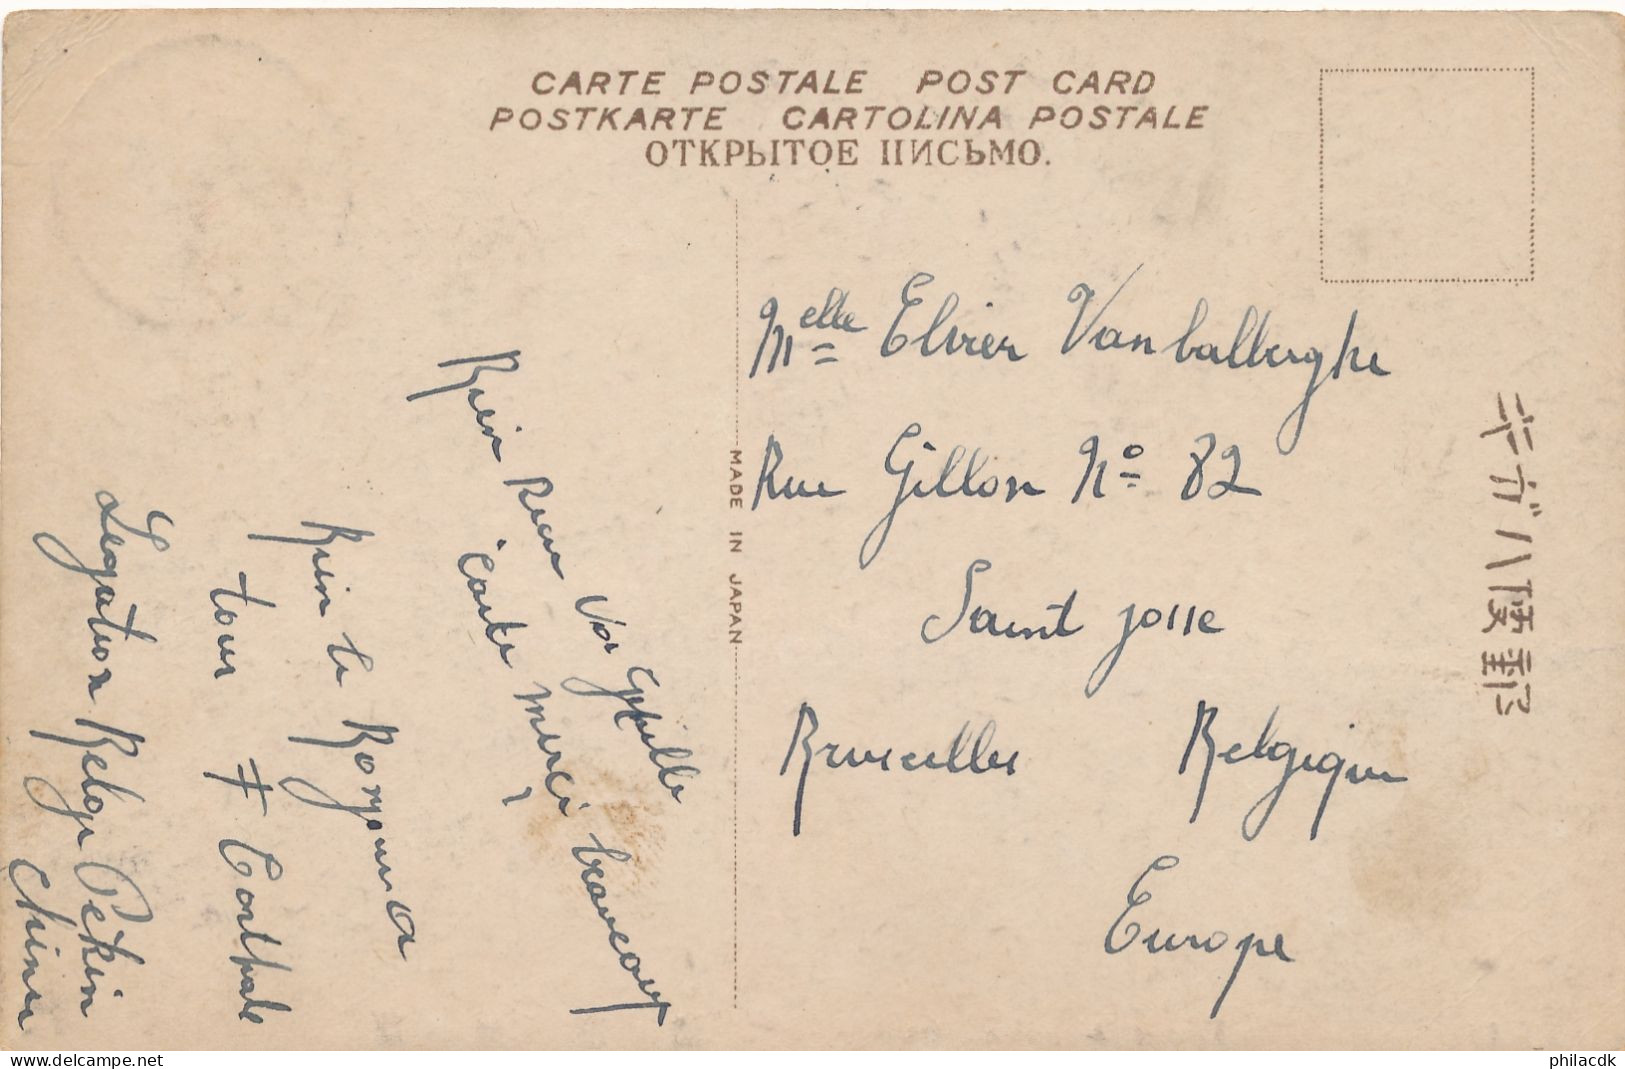 CARTE POSTALE POST CARD
POSTKARTE CARTOLINA POSTALE
ОТКРЫТОЕ ПИСЬМО.
MADE IN JAPAN
Melle Elvier Vanballerghe
Rue Gillon No 82
Saint josse
Bruxelles Belgique
Europe
Bien Recu Vos
Carte Merci beaucoup
Bien le Bonjour a
tous
Legation Belge Pékin
Chine
www.delcampe.net
philacdk